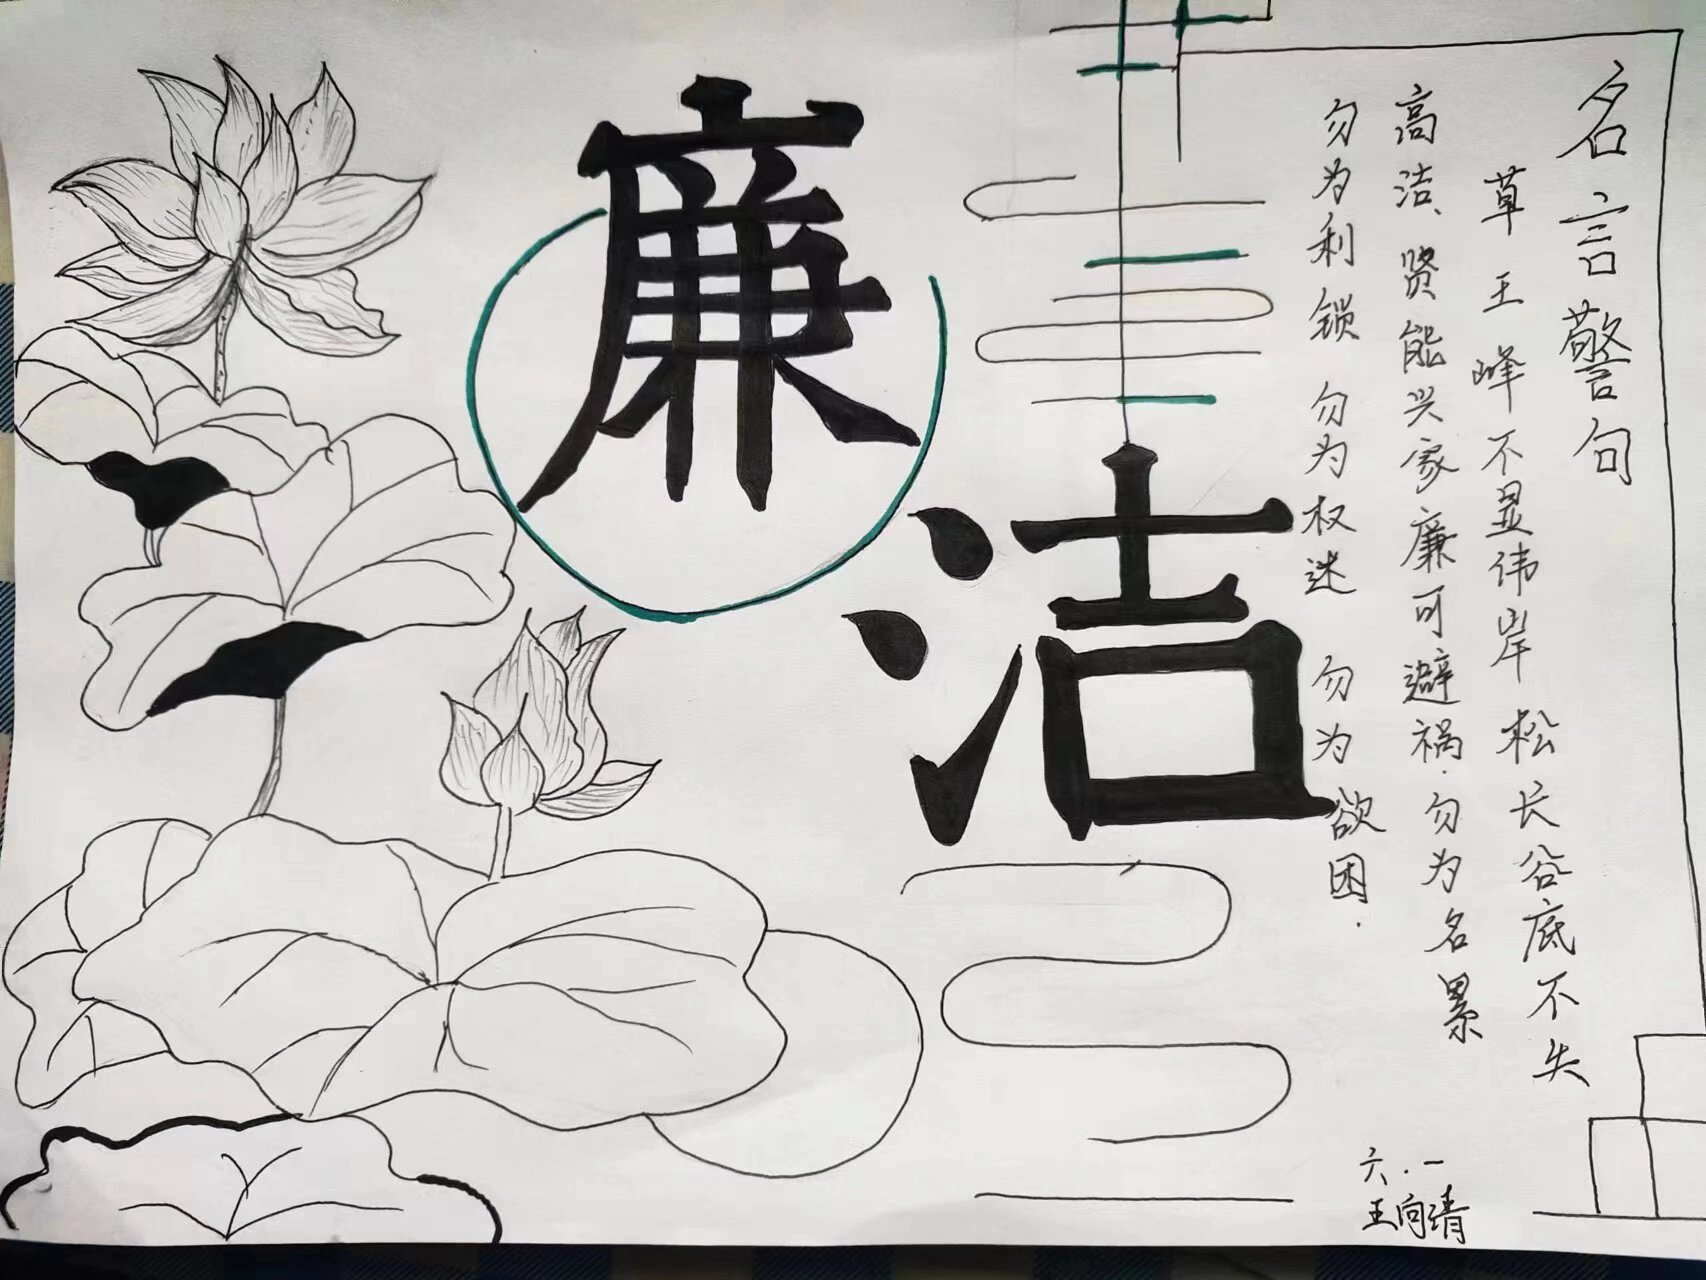 廉
洁
名言警句
草王峰不显伟岸松长谷底不失
高洁、贤能兴家廉可避祸.勿为名累
勿为利锁勿为权迷勿为欲困.
六.一
王向清